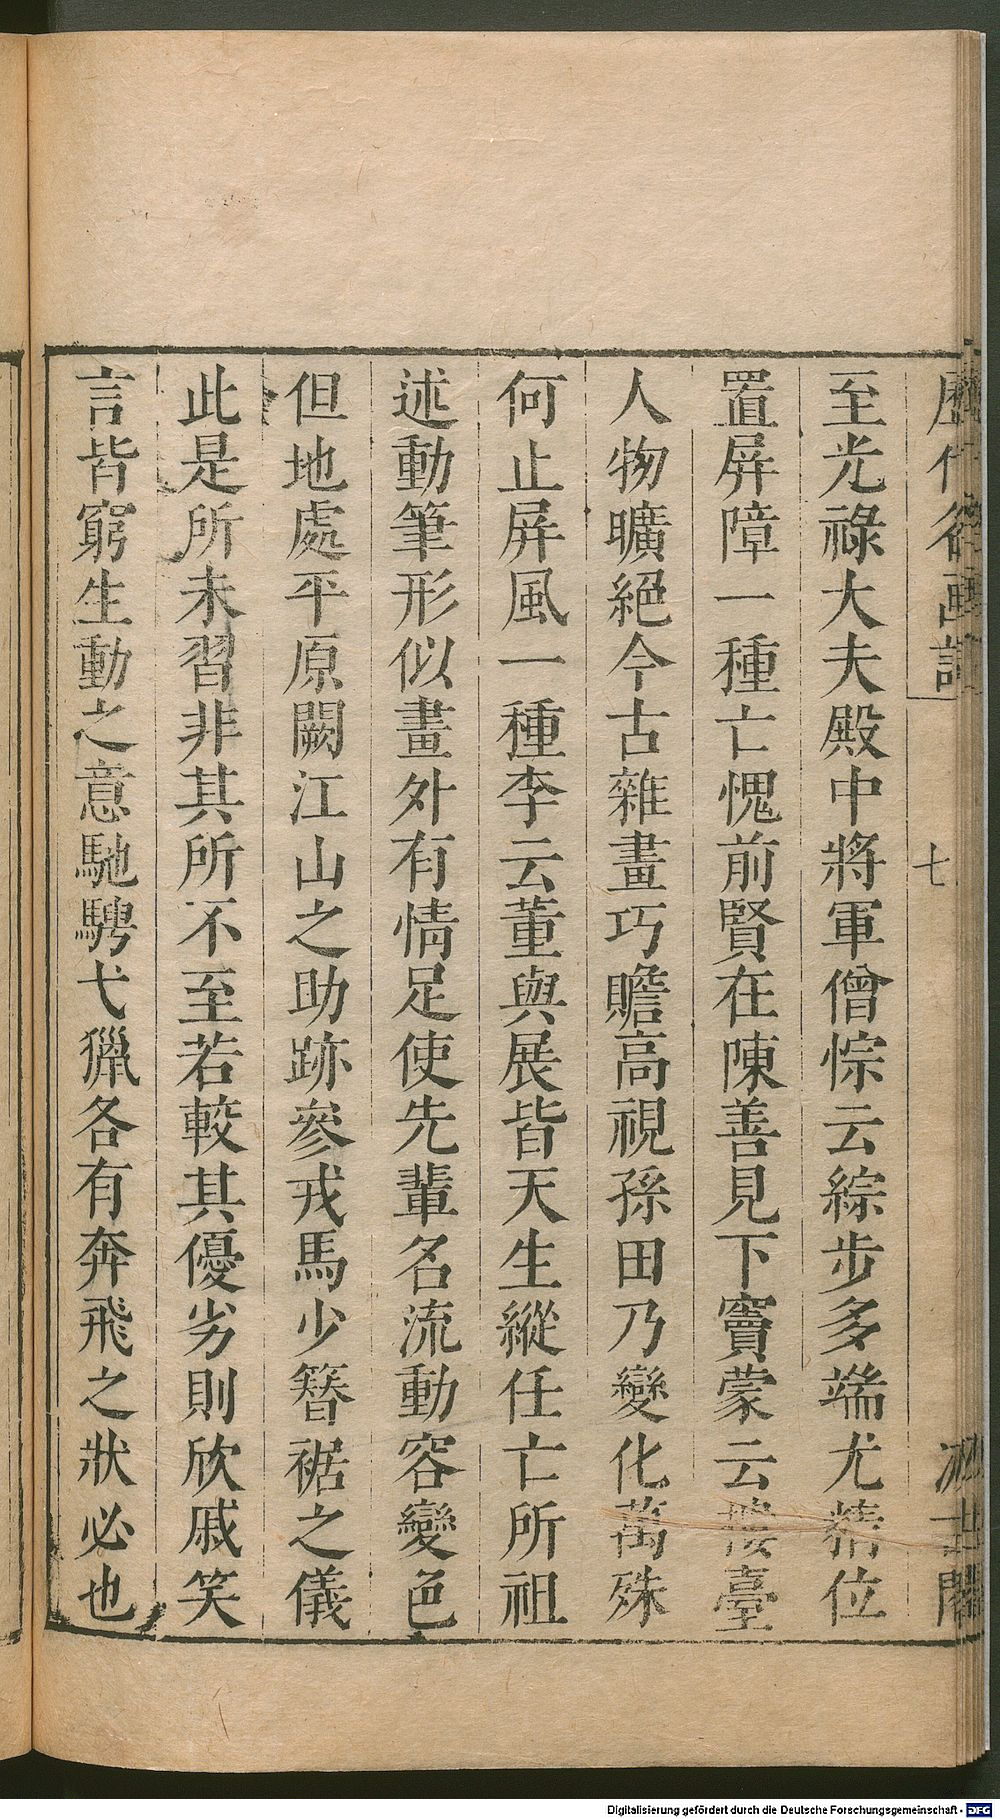 至光祿大夫殿中將軍僧悰云綜步多端尤精位
置屛障一種亡愧前賢在陳善見下竇蒙云樓臺
人物曠絕今古雜畫巧贍高視孫田乃變化萬殊
何止屛風一種李云董與展皆天生縱任亡所祖
述動筆形似畫外有情足使先輩名流動容變色
但地處平原闕江山之助跡參戎馬少簪裾之儀
此是所未習非其所不至若較其優劣則欣戚笑
言皆窮生動之意馳騁弋獵各有奔飛之狀必也
七
Digitalisierung gefördert durch die Deutsche Forschungsgemeinschaft - DFG